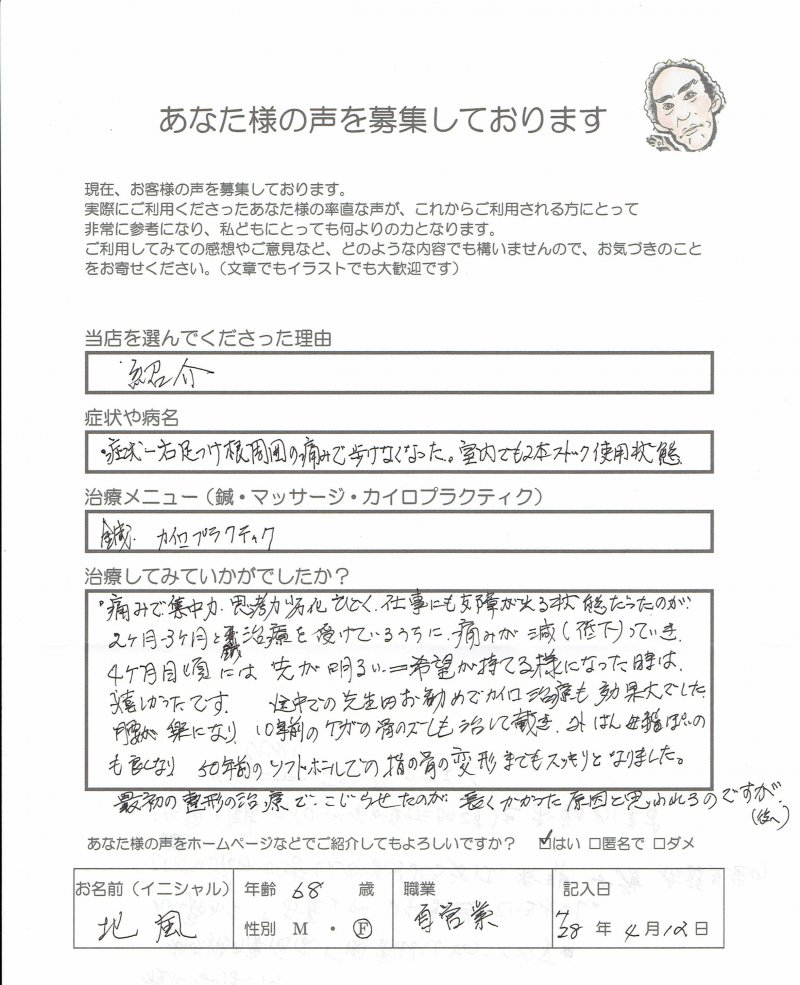 あなた様の声を募集しております
現在、お客様の声を募集しております。
実際にご利用くださったあなた様の率直な声が、これからご利用される方にとって
非常に参考になり、私どもにとっても何よりの力となります。
ご利用してみての感想やご意見など、どのような内容でも構いませんので、お気づきのこと
をお寄せください。（文章でもイラストでも大歓迎です）
当店を選んでくださった理由
紹介
症状や病名
・症状－右足つけ根周囲の痛みで歩けなくなった。室内でも2本ストック使用状態
治療メニュー（鍼・マッサージ・カイロプラクティク）
鍼. カイロプラクティク
治療してみていかがでしたか？
・痛みで集中力、思考力劣化ひどく、仕事にも支障が出る状態だったのが
2ヶ月・3ヶ月と鍼治療を受けているうちに、痛みが減（低下）っていき、
4ケ月目頃には先が明るい＝希望が持てる様になった時は、
嬉しかったです。 途中での先生のお勧めでカイロ治療も効果大でした
腰が楽になり、10年前のケガの骨のズレも治して戴き、外はん母指ぽいの
も良くなり 50年前のソフトボールでの指の骨の変形までもスッキリとなりました。
最初の整形の治療で、こじらせたのが、長くかかった原因と思われるのですが、
（後へ）
あなた様の声をホームページなどでご紹介してもよろしいですか？ ☑はい □匿名で □ダメ
お名前（イニシャル） 年齢 68 歳 職業 記入日
地 風 性別 M ・ Ⓕ 自営業 H28 年 4月12日